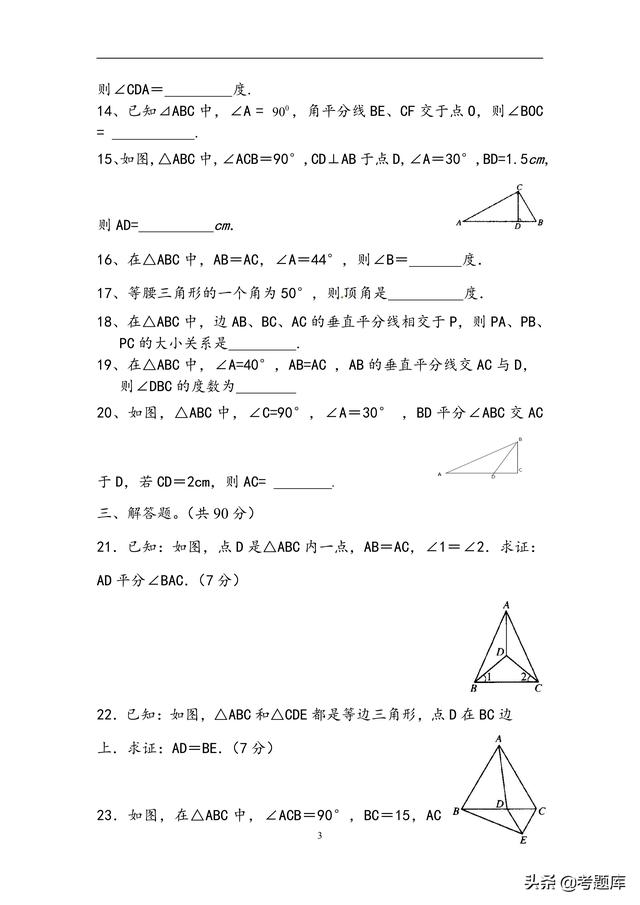 则∠CDA＝_________度.
14、已知⊿ABC 中，∠A = 90⁰，角平分线 BE、CF 交于点 O，则∠BOC
= ___________.
15、如图,△ABC 中,∠ACB＝90°,CD⊥AB 于点 D,∠A＝30°,BD=1.5cm,
C
A D B
则 AD=__________cm.
16、在△ABC 中，AB＝AC，∠A＝44°，则∠B＝_______度.
17、等腰三角形的一个角为 50°，则顶角是__________度.
18、在△ABC 中，边 AB、BC、AC 的垂直平分线相交于 P，则 PA、PB、
PC 的大小关系是_________.
19、在△ABC 中，∠A=40°，AB=AC ，AB 的垂直平分线交 AC 与 D，
则∠DBC 的度数为________
20、如图，△ABC 中，∠C=90°，∠A＝30° ，BD 平分∠ABC 交 AC
B
A D C
于 D，若 CD＝2cm，则 AC= ________.
三、解答题。（共 90 分）
21．已知：如图，点 D 是△ABC 内一点，AB＝AC，∠1＝∠2．求证：
AD 平分∠BAC.（7 分）
A
D
1 2
B C
22．已知：如图，△ABC 和△CDE 都是等边三角形，点 D 在 BC 边
上．求证：AD＝BE.（7 分）
A
B D C
E
23．如图，在△ABC 中，∠ACB＝90°，BC＝15，AC
3
头条 @考题库